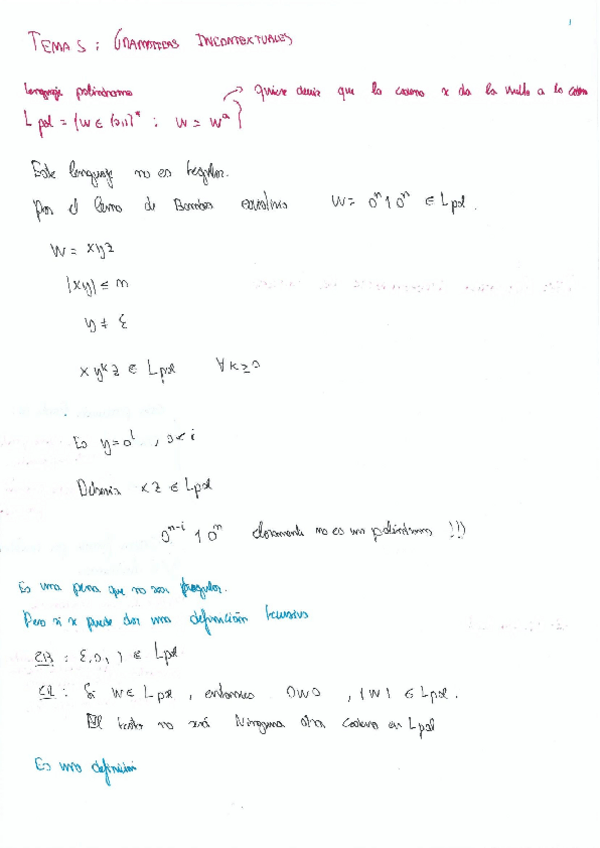 1
TEMA 5: GRAMATICAS INCONTEXTUALES
Lenguaje palindromo
Quiere decir que la cadena se da la vuelta a la
L pal = {w ∈ {0,1}* : w = wᴿ}
Este lenguaje no es regular.
Por el Lema de Bombeo w = 0ⁿ10ⁿ ∈ Lpal.
w = xyz
|xy| ≤ n
y ≠ ε
x yᵏ z ∈ Lpal ∀k≥0
Es y=0ⁱ, 0<i
Debería xz ∈ Lpal
0ⁿ⁻ⁱ 1 0ⁿ claramente no es un palíndromo !!)
Es una pena que no sea regular.
Pero si se puede dar una definición recursiva
CB : ε,0,1 ∈ Lpal
CR : Si w ∈ Lpal, entonces 0w0, 1w1 ∈ Lpal.
El resto no será Ninguna otra cadena en Lpal
Es una definición